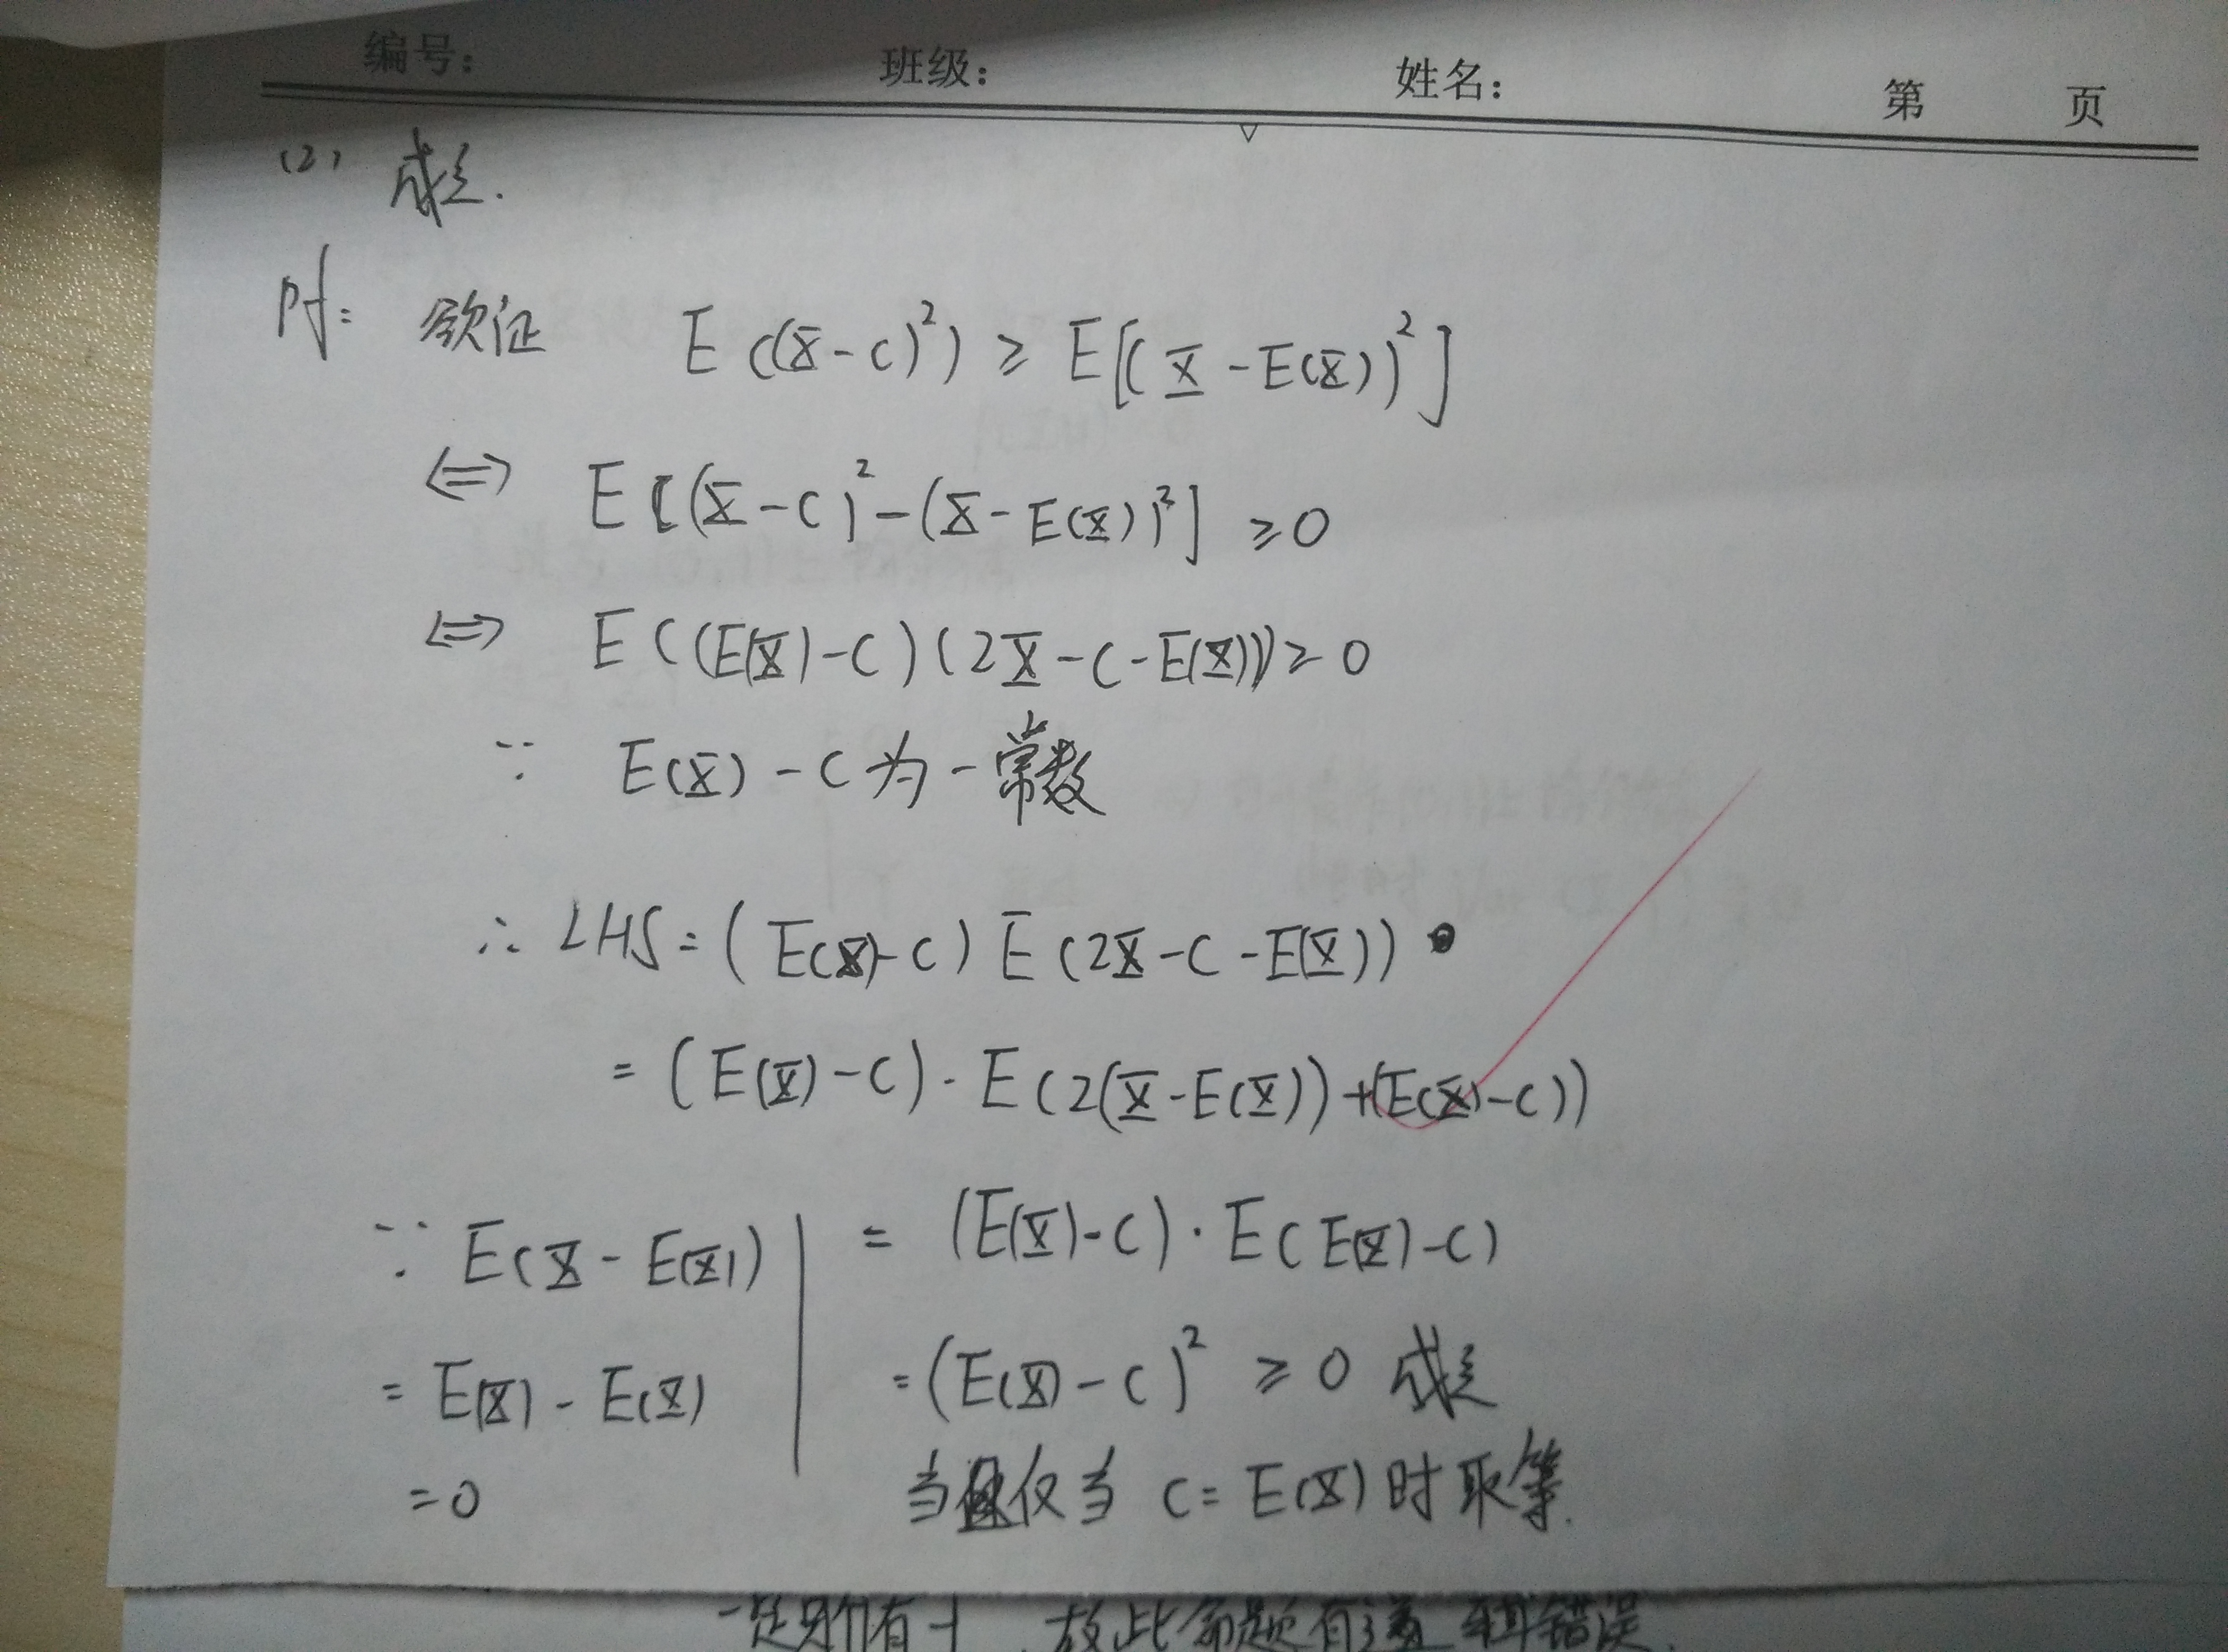 编号: 班级: 姓名: 第 页
(2) 成立.
pf: 欲证 E((X-C)²) ≥ E[(X-E(X))²]
⇔ E[(X-C)²-(X-E(X))²] ≥0
⇔ E((E(X)-C)(2X-C-E(X)))≥0
∵ E(X)-C为一常数
∴ LHS=(E(X)-C)E(2X-C-E(X))
=(E(X)-C)·E(2(X-E(X))+(E(X)-C))
∵ E(X-E(X))
= E(X)-E(X)
=0
= (E(X)-C)·E(E(X)-C)
=(E(X)-C)² ≥0 成立
当且仅当 C=E(X)时取等.
故此命题有 错误.